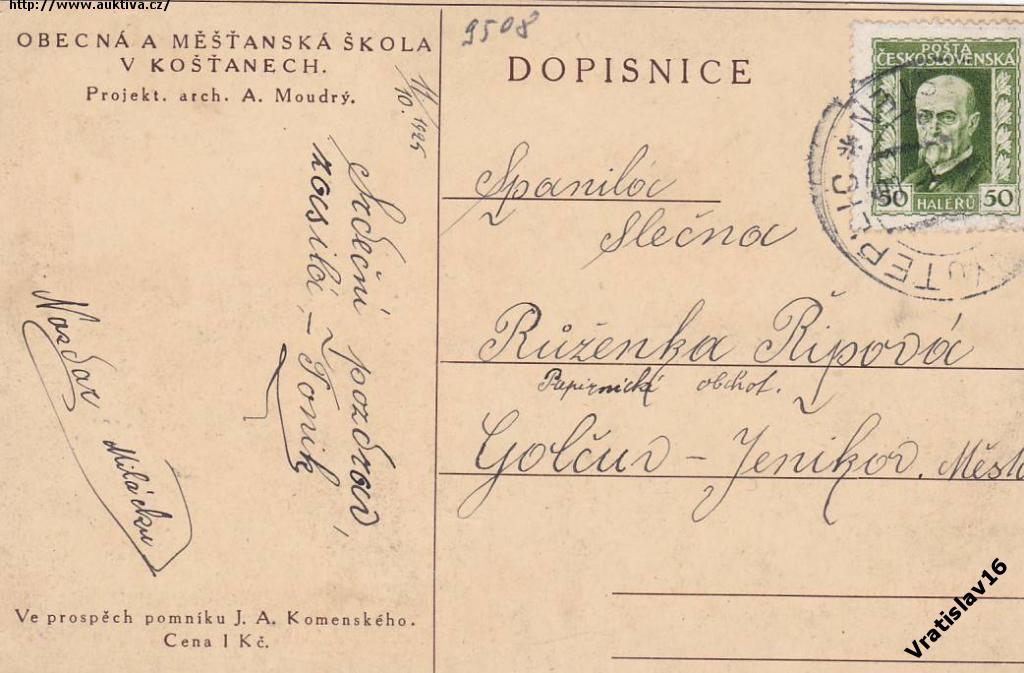 http://www.auktiva.cz/
OBECNÁ A MĚŠŤANSKÁ ŠKOLA
V KOŠŤANECH.
Projekt. arch. A. Moudrý.
11/10. 1925
Srdečný pozdrav
zasílá, – Toník
Nazdar
Miláčku
Ve prospěch pomníku J. A. Komenského.
Cena 1 Kč.
9508
DOPISNICE
POŠTA
ČESKOSLOVENSKÁ
50 HALÉŘŮ 50
Spanilá
Slečna
Růženka Řípová
Papírnický obchot.
Golčův – Jeníkov. Město
Vratislav16